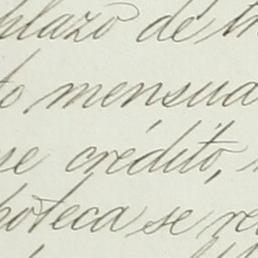 plazo de
mensua
crédito,
poteca se re